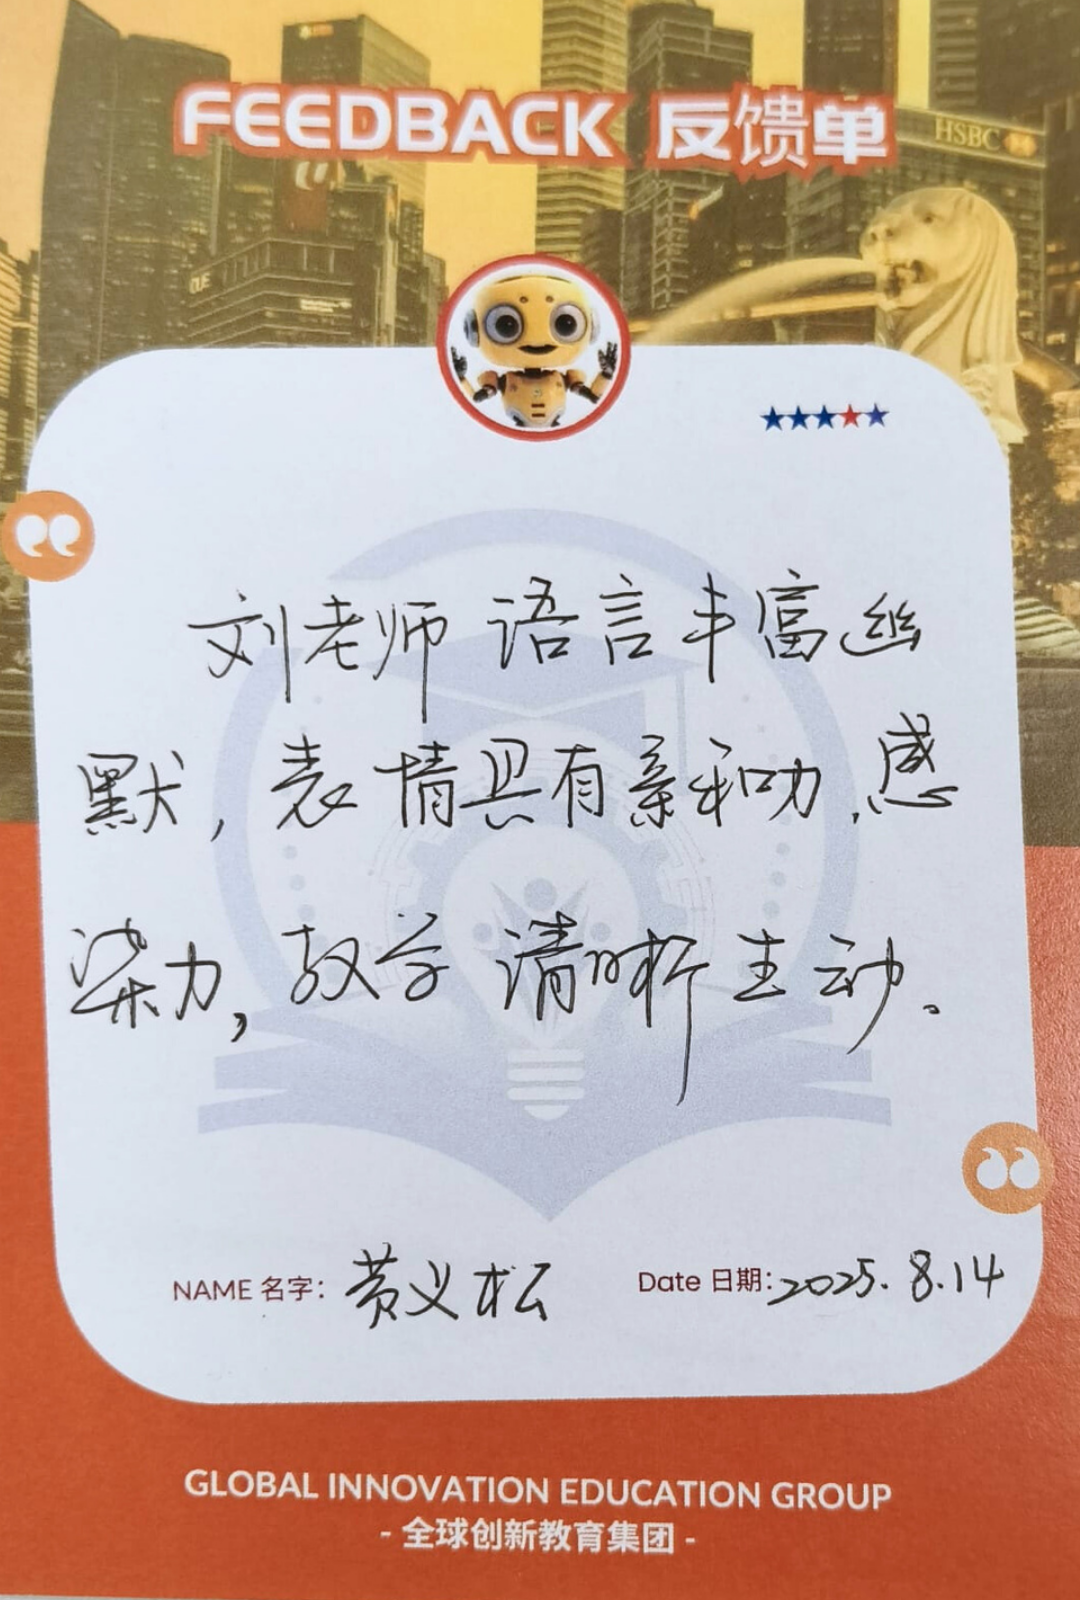 FEEDBACK 反馈单
HSBC
刘老师 语言丰富幽
默，表情具有亲和力，感
染力，教学 清晰生动。
NAME 名字： 黄义松
Date 日期：2025.8.14
GLOBAL INNOVATION EDUCATION GROUP
- 全球创新教育集团 -